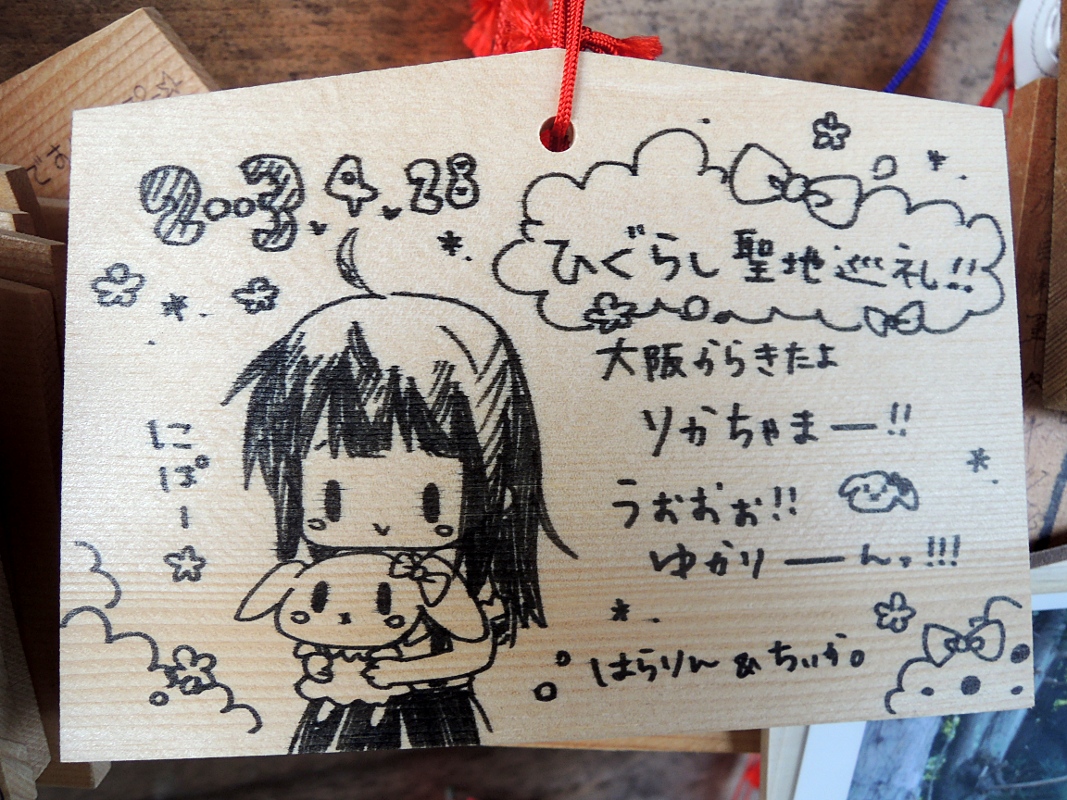 2..3.4.28
ひぐらし聖地巡礼!!
大阪からきたよ
りかちゃまー!!
うぉおぉ!!
ゆかりーんっ!!!
にぱー☆
はらりん &